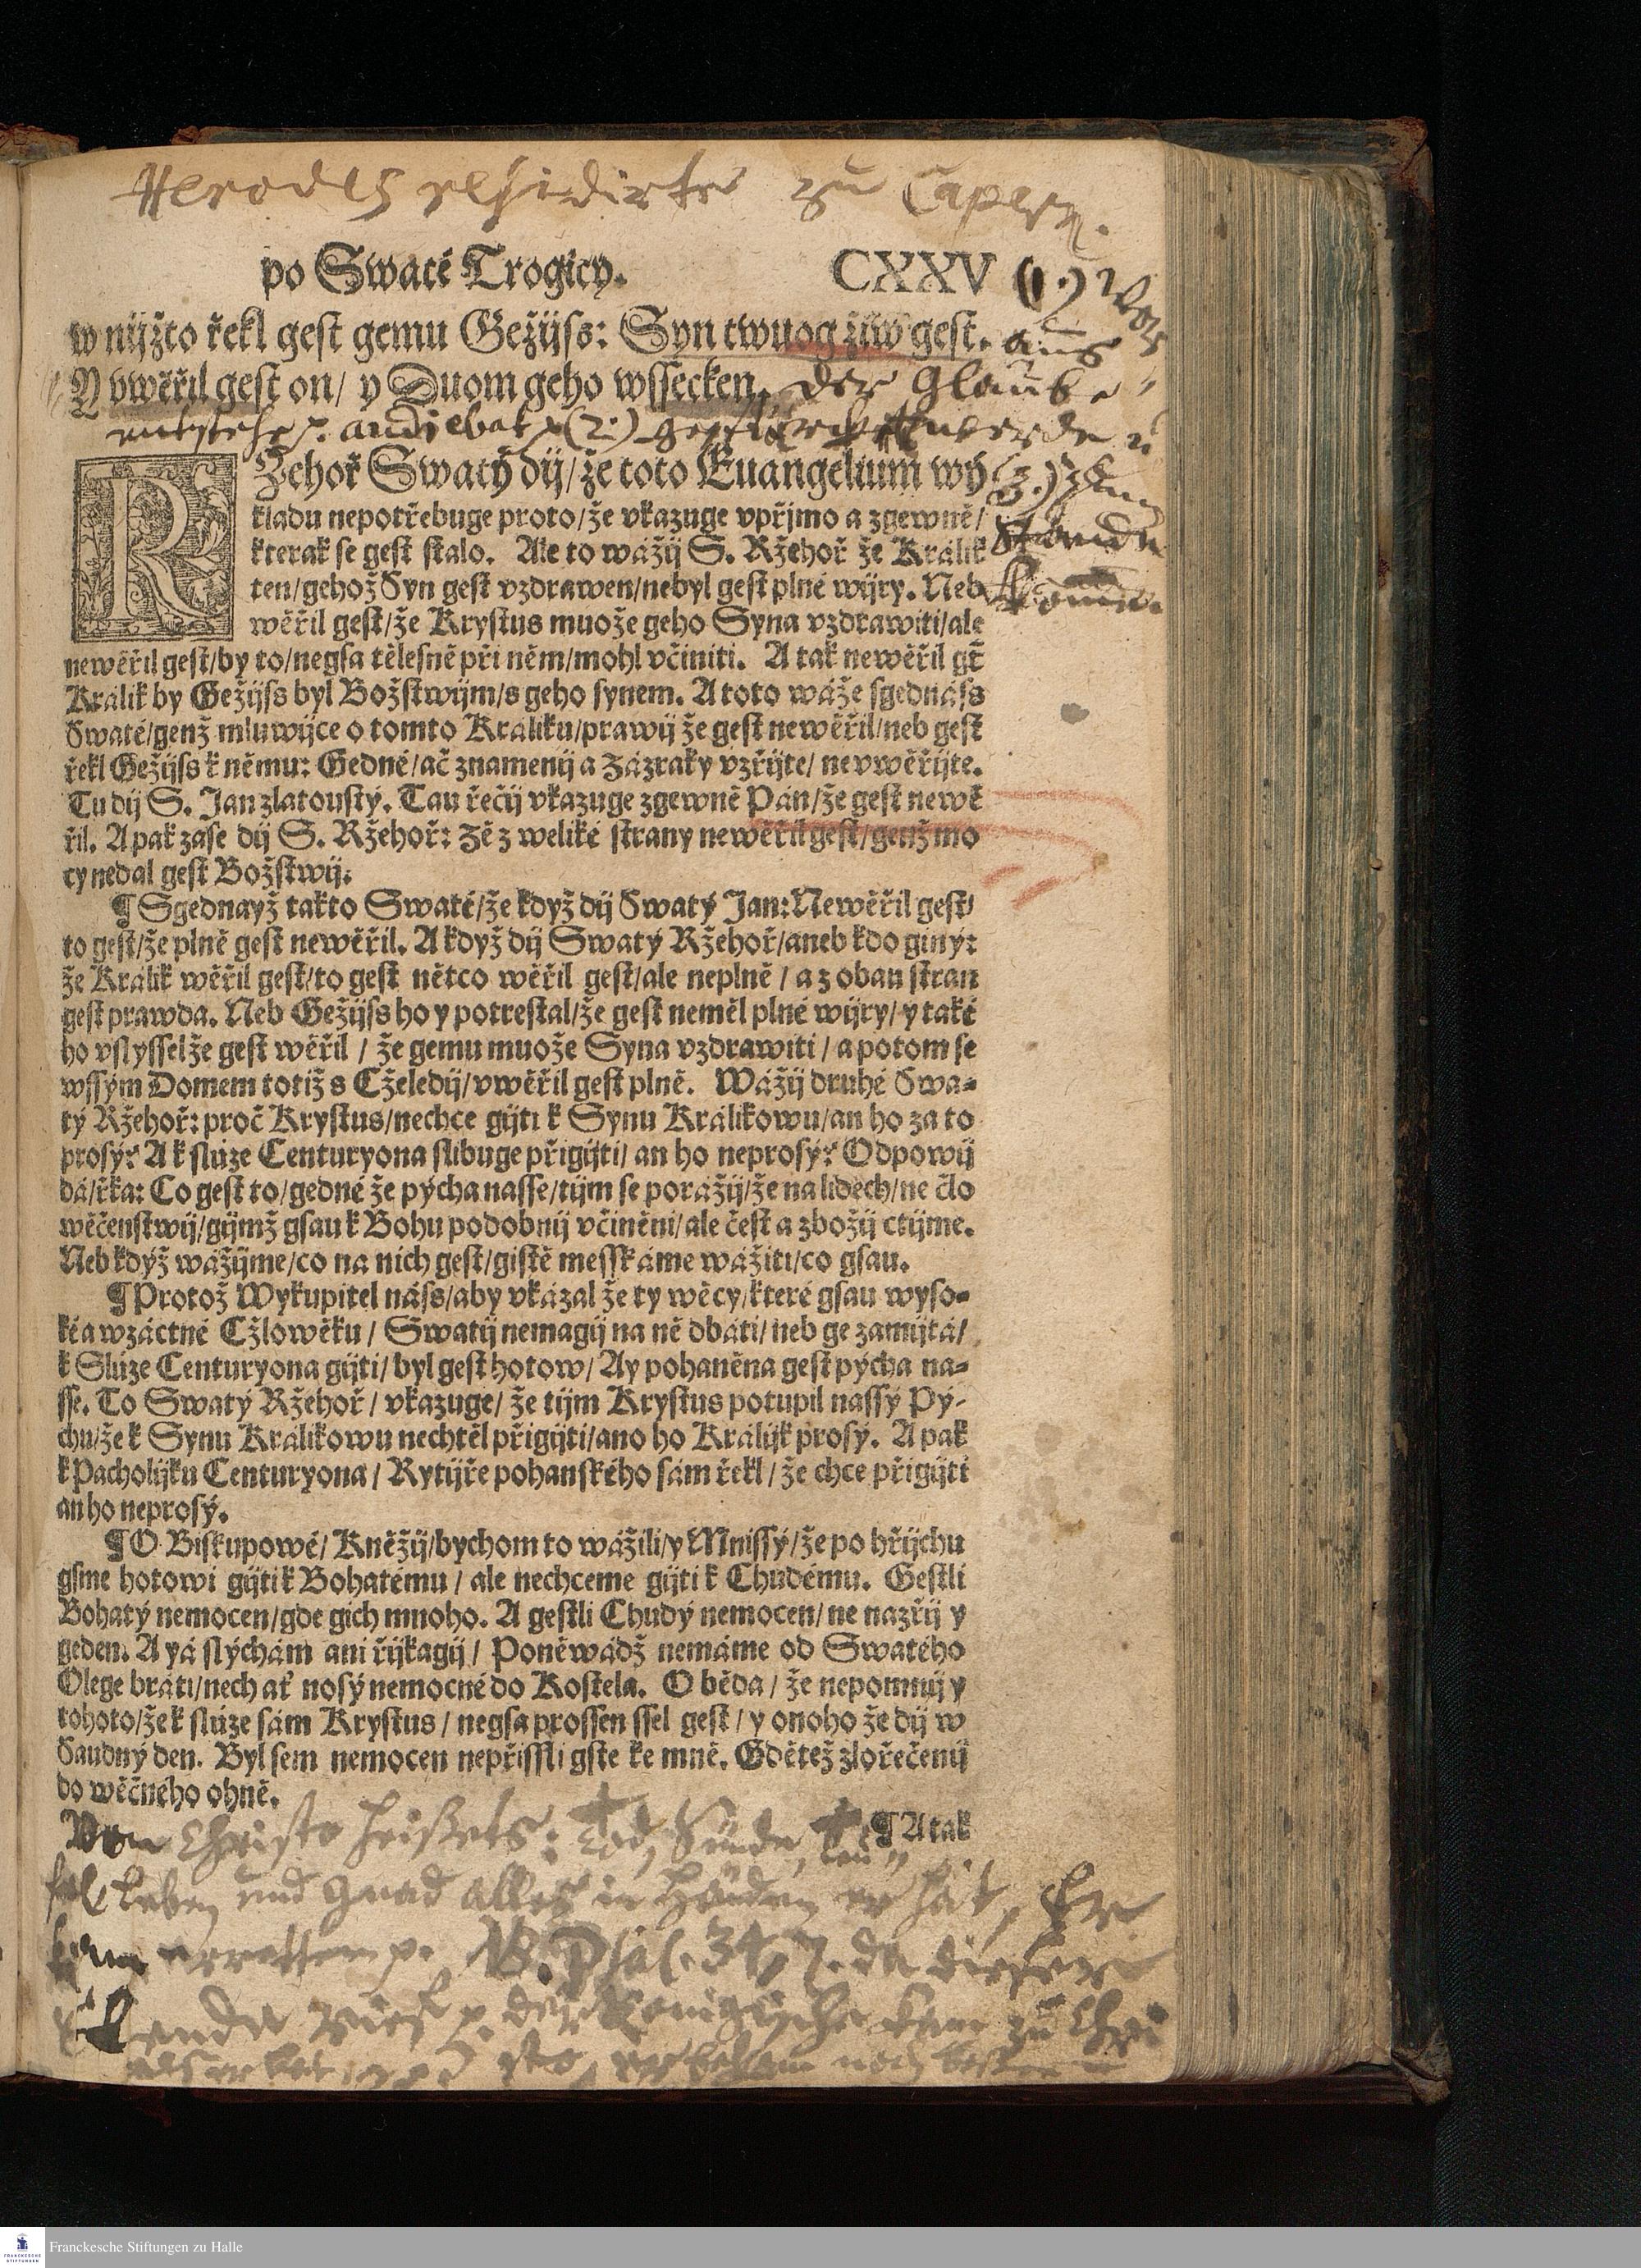 Herodes residirte zu Capern.
po Swaté Trogicy. CXXV (1.) Wor
w nijžto řekl gest gemu Gežijss: Syn twuog žiw gest. aus
Y vwěřil gest on/ y Duom geho wssecken. der Glaube
entstehe p. audiebat p (2.) werde u
RŽehoř Swatý dij/ že toto Euangelium wý (3.)
kladu nepotřebuge proto/ že vkazuge vpřjmo a zgewně/
kterak se gest stalo. Ale to wážij S. Ržehoř že Králik
ten/ gehož Syn gest vzdrawen/ nebyl gest plné wijry. Neb
wěřil gest/ že Krystus muože geho Syna vzdrawiti/ ale
newěřil gest/ by to/ negsa tělesně při něm/ mohl včiniti. A tak newěřil gt̃
Králik by Gežijss byl Božstwijm/ s geho synem. A toto wáže sgednáss
Swaté/ genž mluwijce o tomto Králiku/ prawij že gest newěřil/ neb gest
řekl Gežijss k němu: Gedné/ ač znamenij a Zázraky vzřijte/ nevwěřijte.
Tu dij S. Jan zlatoustý. Tau řečij vkazuge zgewně Pán/ že gest newě
řil. A pak zase dij S. Ržehoř: Zě z weliké strany newěřil gest/ genž mo
cy nedal gest Božstwij.
¶ Sgednayž takto Swaté/ že když dij Swatý Jan: Newěřil gest/
to gest/ že plně gest newěřil. A když dij Swatý Ržehoř/ aneb kdo giný:
že Králik wěřil gest/ to gest nětco wěřil gest/ ale neplně / a z obau stran
gest prawda. Neb Gežijss ho y potrestal/ že gest neměl plné wijry/ y také
ho vslyssel že gest wěřil / že gemu muože Syna vzdrawiti / a potom se
wssým Domem totiž s Cželedij/ vwěřil gest plně. Wážij druhé Swa-
tý Ržehoř: proč Krystus/ nechce gijti k Synu Králikowu/ an ho za to
prosý? A k sluze Centuryona slibuge přigijti/ an ho neprosý? Odpowij
dá/ řka: Co gest to/ gedné že pýcha nasse/ tijm se porážij/ že na lidech/ ne čło
wěčenstwij/ gijmž gsau k Bohu podobnij včiněni/ ale čest a zbožij ctijme.
Neb když wážijme/ co na nich gest/ gistě messkáme wážiti/ co gsau.
¶ Protož Wykupitel náss/ aby vkázal že ty wěcy/ které gsau wyso-
ké a wzáctné Cžlowěku / Swatij nemagij na ně dbáti/ neb ge zamijtá/
k Slúze Centuryona gijti/ byl gest hotow/ Ay pohaněna gest pýcha na-
sse. To Swatý Ržehoř / vkazuge/ že tijm Krystus potupil nassý Pý-
chu/ že k Synu Králikowu nechtěl přigijti/ ano ho Králijk prosý. A pak
k Pacholijku Centuryona / Rytijře pohanského sám řekl / že chce přigijti
an ho neprosý.
¶ O Biskupowé/ Kněžij/ bychom to wážili/ y Mnissý/ že po hřijchu
gsme hotowi gijti k Bohatému / ale nechceme gijti k Chudému. Gestli
Bohatý nemocen/ gde gich mnoho. A gestli Chudý nemocen/ ne nazřij y
geden. A yá slýchám ani řijkagij / Poněwádž nemáme od Swatého
Olege bráti/ nech ať nosý nemocné do Kostela. O běda / že nepomnij y
tohoto/ že k sluze sám Krystus / negsa prossen ssel gest / y onoho že dij w
Saudný den. Byl sem nemocen nepřissli gste ke mně. Gdětež zlořečenij
do wěčného ohně.
¶ A tak
Von Christo heissets: Tod, Sünde, Teu
fel Leben und Gnad alles in Händen er hat, Er
kann erretten p. NB. Psal. 34, 7. da dieser
Elende rief p. der Königische kam zu Chri
sto, er bekam noch
Franckesche Stiftungen zu Halle